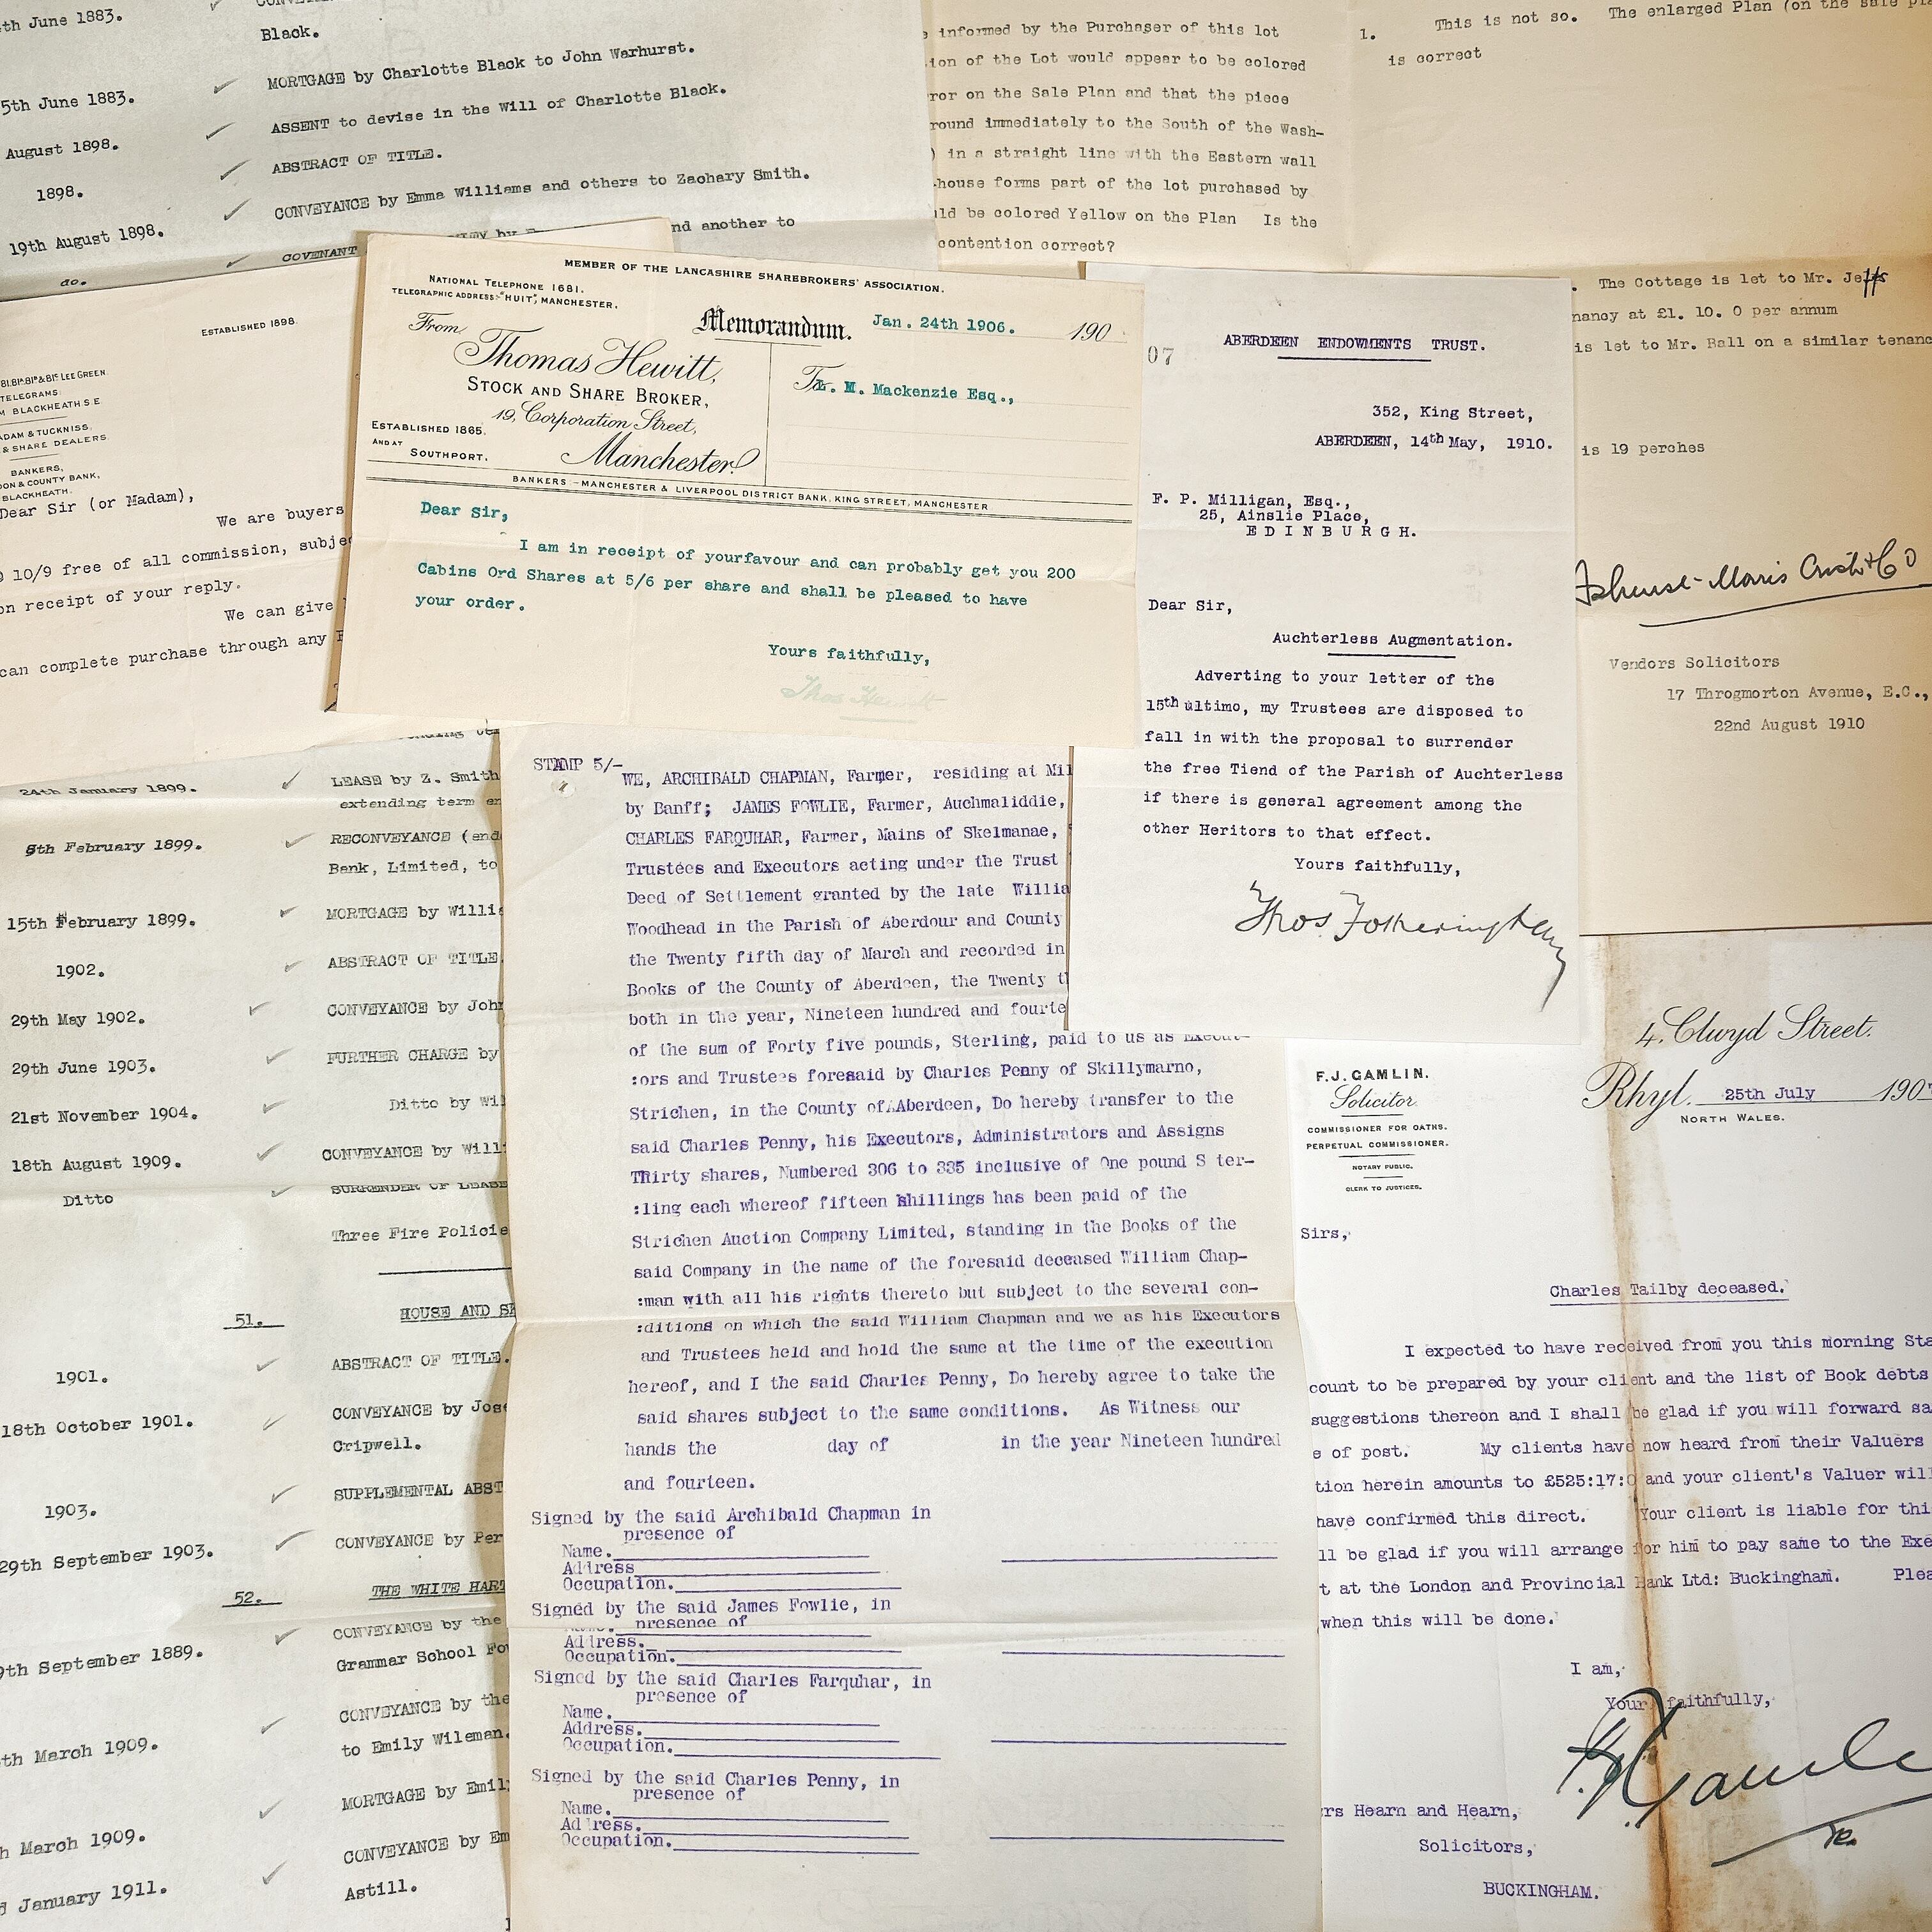 th June 1883.
Black.
5th June 1883.
MORTGAGE by Charlotte Black to John Warhurst.
August 1898.
ASSENT to devise in the Will of Charlotte Black.
1898.
ABSTRACT OF TITLE.
19th August 1898.
CONVEYANCE by Emma Williams and others to Zachary Smith.
do.
COVENANT
nd another to
informed by the Purchaser of this lot
ion of the Lot would appear to be colored
ror on the Sale Plan and that the piece
round immediately to the South of the Wash-
) in a straight line with the Eastern wall
-house forms part of the lot purchased by
ld be colored Yellow on the Plan Is the
contention correct?
1. This is not so. The enlarged Plan (on the sale
is correct
. The Cottage is let to Mr. Jeffs
nancy at £1. 10. 0 per annum
is let to Mr. Ball on a similar tenanc
is 19 perches
Vendors Solicitors
17 Throgmorton Avenue, E.C.,
22nd August 1910
ESTABLISHED 1898.
LEE GREEN.
TELEGRAMS:
BLACKHEATH S.E.
ADAM & TUCKNISS,
& SHARE DEALERS.
BANKERS,
ON & COUNTY BANK,
BLACKHEATH.
Dear Sir (or Madam),
We are buyers
10/9 free of all commission, subje
on receipt of your reply.
We can give
can complete purchase through any
MEMBER OF THE LANCASHIRE SHAREBROKERS' ASSOCIATION.
NATIONAL TELEPHONE 1681.
TELEGRAPHIC ADDRESS:- "HUIT", MANCHESTER.
Memorandum.
Jan. 24th 1906. 190
From
Thomas Hewitt,
STOCK AND SHARE BROKER,
19, Corporation Street,
Manchester.
ESTABLISHED 1865.
AND AT
SOUTHPORT.
To L. M. Mackenzie Esq.,
BANKERS:-MANCHESTER & LIVERPOOL DISTRICT BANK, KING STREET, MANCHESTER
Dear Sir,
I am in receipt of yourfavour and can probably get you 200
Cabins Ord Shares at 5/6 per share and shall be pleased to have
your order.
Yours faithfully,
Thos Hewitt
07
ABERDEEN ENDOWMENTS TRUST.
352, King Street,
ABERDEEN, 14th May, 1910.
F. P. Milligan, Esq.,
25, Ainslie Place,
EDINBURGH.
Dear Sir,
Auchterless Augmentation.
Adverting to your letter of the
15th ultimo, my Trustees are disposed to
fall in with the proposal to surrender
the free Tiend of the Parish of Auchterless
if there is general agreement among the
other Heritors to that effect.
Yours faithfully,
Thos Fotheringham
24th January 1899.
LEASE by Z. Smith
extending term en
8th February 1899.
RECONVEYANCE (end
Bank, Limited, to
15th February 1899.
MORTGAGE by Willi
1902.
ABSTRACT OF TITLE.
29th May 1902.
CONVEYANCE by John
29th June 1903.
FURTHER CHARGE by
21st November 1904.
Ditto by Wil
18th August 1909.
CONVEYANCE by Willi
Ditto
SURRENDER OF LEASE
Three Fire Policie
51.
HOUSE AND SH
1901.
ABSTRACT OF TITLE.
18th October 1901.
CONVEYANCE by Jos
Cripwell.
1903.
SUPPLEMENTAL ABST
29th September 1903.
CONVEYANCE by Per
52.
THE WHITE HART
9th September 1889.
CONVEYANCE by the
Grammar School Fo
th March 1909.
CONVEYANCE by the
to Emily Wileman.
h March 1909.
MORTGAGE by Emil
January 1911.
CONVEYANCE by Em
Astill.
STAMP 5/-
WE, ARCHIBALD CHAPMAN, Farmer, residing at Mil
by Banff; JAMES FOWLIE, Farmer, Auchmaliddie,
CHARLES FARQUHAR, Farmer, Mains of Skelmanae,
Trustees and Executors acting under the Trust
Deed of Settlement granted by the late Willia
Woodhead in the Parish of Aberdour and County
the Twenty fifth day of March and recorded in
Books of the County of Aberdeen, the Twenty t
both in the year, Nineteen hundred and fourte
of the sum of Forty five pounds, Sterling, paid to us as Execut-
:ors and Trustees foresaid by Charles Penny of Skillymarno,
Strichen, in the County of Aberdeen, Do hereby transfer to the
said Charles Penny, his Executors, Administrators and Assigns
Thirty shares, Numbered 306 to 335 inclusive of One pound S ter-
:ling each whereof fifteen shillings has been paid of the
Strichen Auction Company Limited, standing in the Books of the
said Company in the name of the foresaid deceased William Chap-
:man with all his rights thereto but subject to the several con-
:ditions on which the said William Chapman and we as his Executors
and Trustees held and hold the same at the time of the execution
hereof, and I the said Charles Penny, Do hereby agree to take the
said shares subject to the same conditions. As Witness our
hands the day of in the year Nineteen hundred
and fourteen.
Signed by the said Archibald Chapman in
presence of
Name.
Address
Occupation.
Signed by the said James Fowlie, in
presence of
Name.
Address.
Occupation.
Signed by the said Charles Farquhar, in
presence of
Name.
Address.
Occupation.
Signed by the said Charles Penny, in
presence of
Name.
Address.
Occupation.
F. J. GAMLIN.
Solicitor.
COMMISSIONER FOR OATHS.
PERPETUAL COMMISSIONER.
NOTARY PUBLIC.
CLERK TO JUSTICES.
4, Clwyd Street.
Rhyl. 25th July 190
NORTH WALES.
Sirs,
Charles Tailby deceased.
I expected to have received from you this morning Sta
count to be prepared by your client and the list of Book debts
suggestions thereon and I shall be glad if you will forward sa
e of post. My clients have now heard from their Valuers
tion herein amounts to £525:17:0 and your client's Valuer will
have confirmed this direct. Your client is liable for thi
ll be glad if you will arrange for him to pay same to the Exe
t at the London and Provincial Bank Ltd: Buckingham. Plea
when this will be done.
I am,
Your faithfully,
rs Hearn and Hearn,
Solicitors,
BUCKINGHAM.